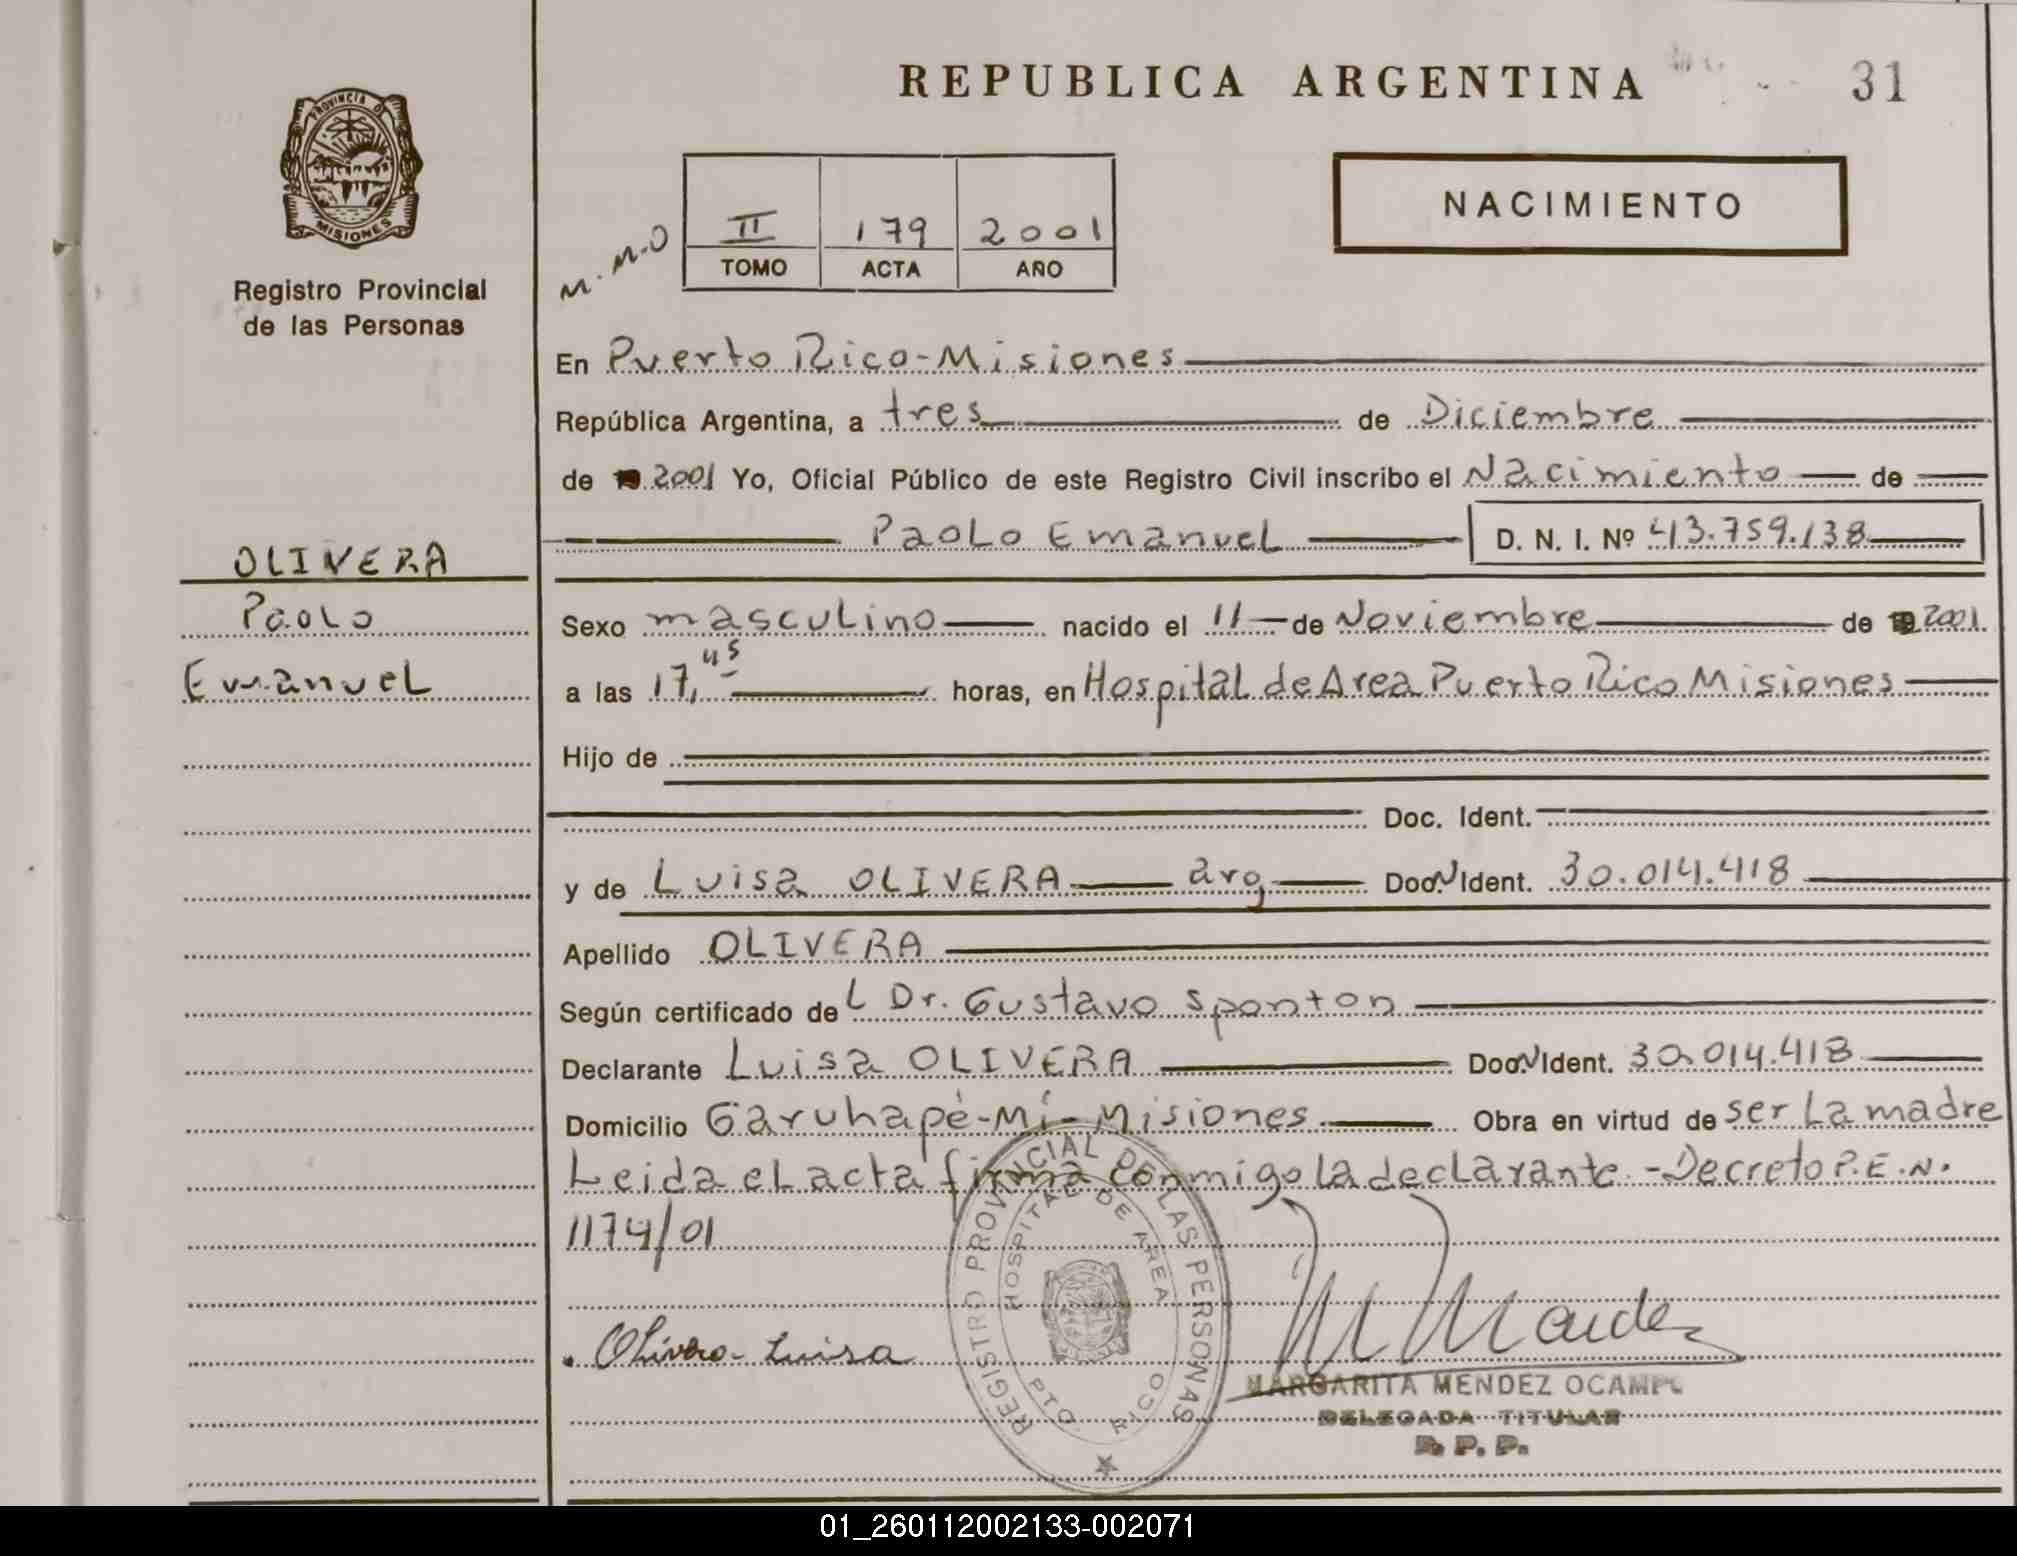 REPUBLICA ARGENTINA
31
PROVINCIA DE
MISIONES
Registro Provincial
de las Personas
NACIMIENTO
M.M.O
II 179 2001
TOMO ACTA AÑO
En Puerto Rico-Misiones
República Argentina, a tres de Diciembre
de 2001 Yo, Oficial Público de este Registro Civil inscribo el Nacimiento de
Paolo Emanuel D. N. I. Nº 43.759.138
OLIVERA
Paolo
Emanuel
Sexo masculino nacido el 11 de Noviembre de 2001
a las 17,45 horas, en Hospital de Area Puerto Rico Misiones
Hijo de
Doc. Ident.
y de Luisa OLIVERA arg Doc. Ident. 30.014.418
Apellido OLIVERA
Según certificado de L Dr. Gustavo Sponton
Declarante Luisa OLIVERA Doc. Ident. 30.014.418
Domicilio Garuhapé-Mí-Misiones Obra en virtud de ser La madre
Leida el acta firma conmigo la declarante.-Decreto P.E.N.
1174/01
Olivera Luisa
REGISTRO PROVINCIAL DE LAS PERSONAS
HOSPITAL DE AREA
PTO. RICO
M Mendez
MARGARITA MENDEZ OCAMPO
DELEGADA TITULAR
R. P. P.
01_260112002133-002071